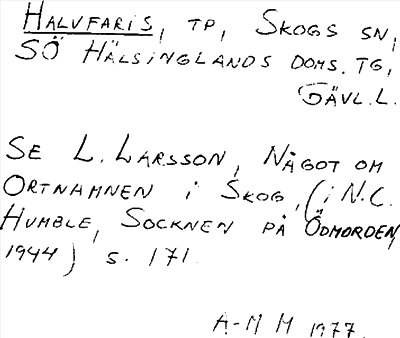 HALVFARIS, TP, SKOGS SN,
SÖ HÄLSINGLANDS DOMS. TG,
GÄVL. L.
SE L. LARSSON, NÅGOT OM
ORTNAMNEN i SKOG, (i N.C.
HUMBLE, SOCKNEN PÅ ÖDMORDEN,
1944) s. 171.
A-M M 1977.